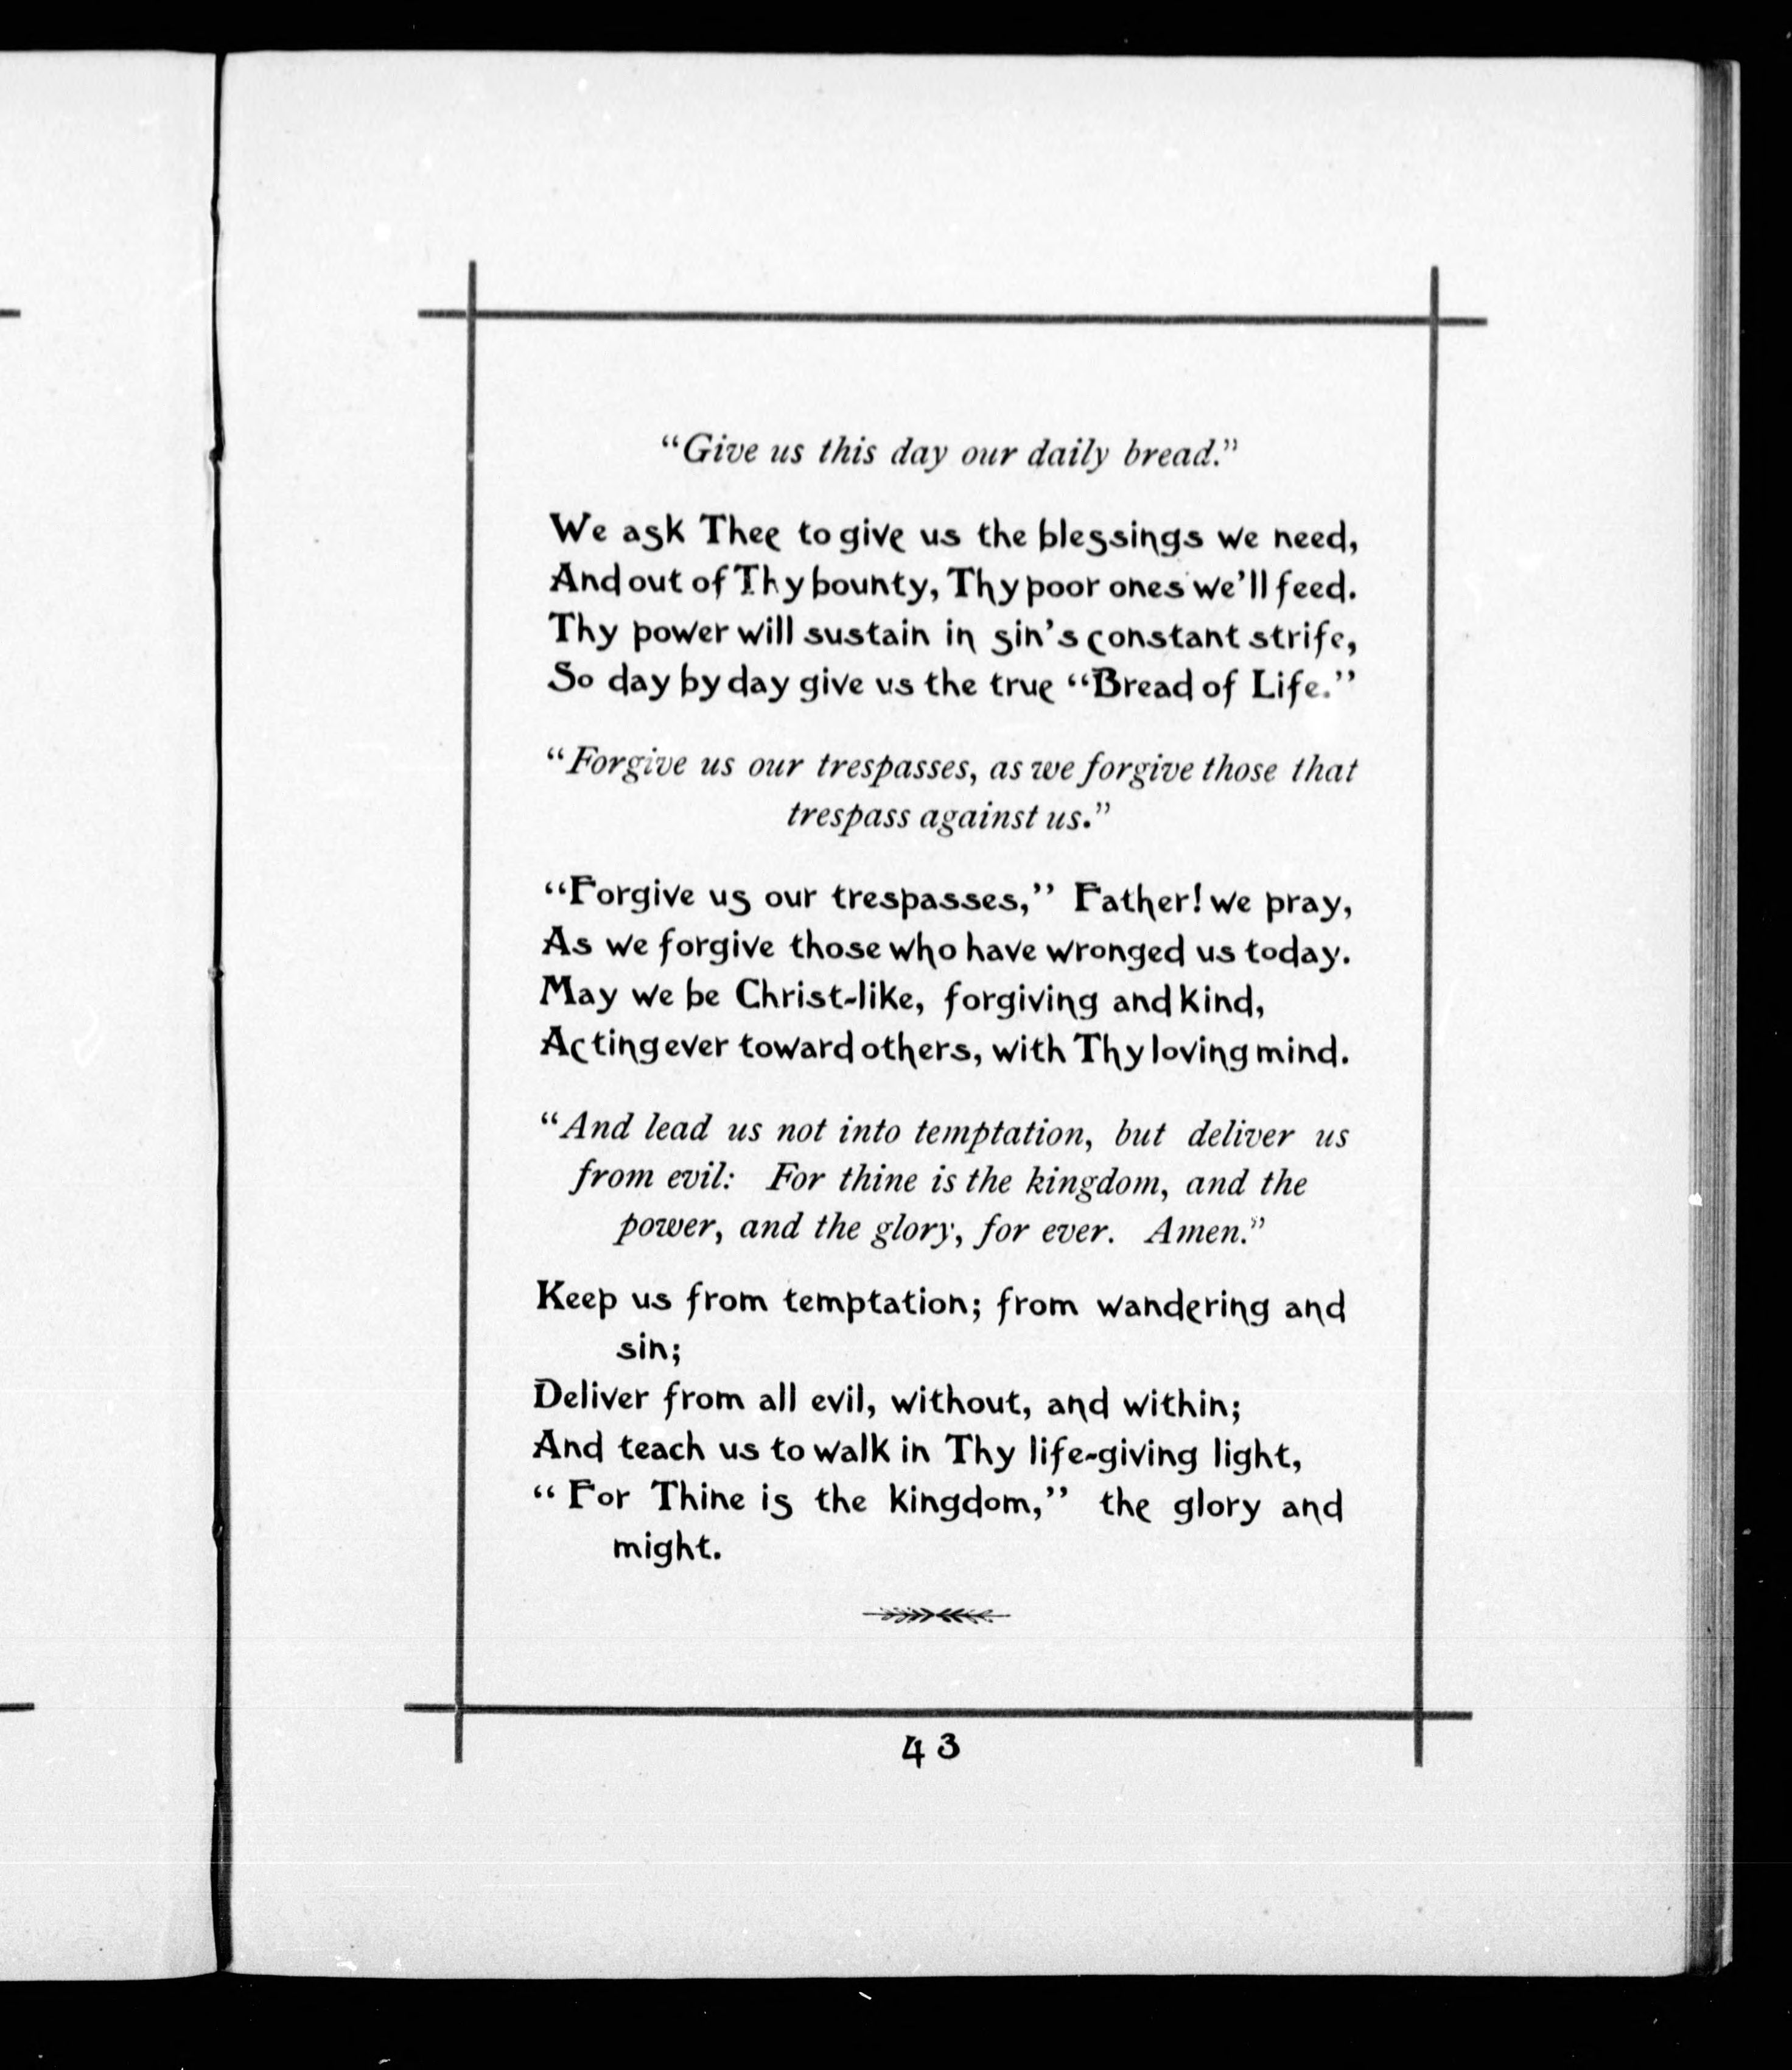 “Give us this day our daily bread.”
We ask Thee to give us the blessings we need,
And out of Thy bounty, Thy poor ones we’ll feed.
Thy power will sustain in sin’s constant strife,
So day by day give us the true “Bread of Life.”
“Forgive us our trespasses, as we forgive those that
trespass against us.”
“Forgive us our trespasses,” Father! we pray,
As we forgive those who have wronged us today.
May we be Christ-like, forgiving and kind,
Acting ever toward others, with Thy loving mind.
“And lead us not into temptation, but deliver us
from evil: For thine is the kingdom, and the
power, and the glory, for ever. Amen.”
Keep us from temptation; from wandering and
sin;
Deliver from all evil, without, and within;
And teach us to walk in Thy life-giving light,
“For Thine is the kingdom,” the glory and
might.
43